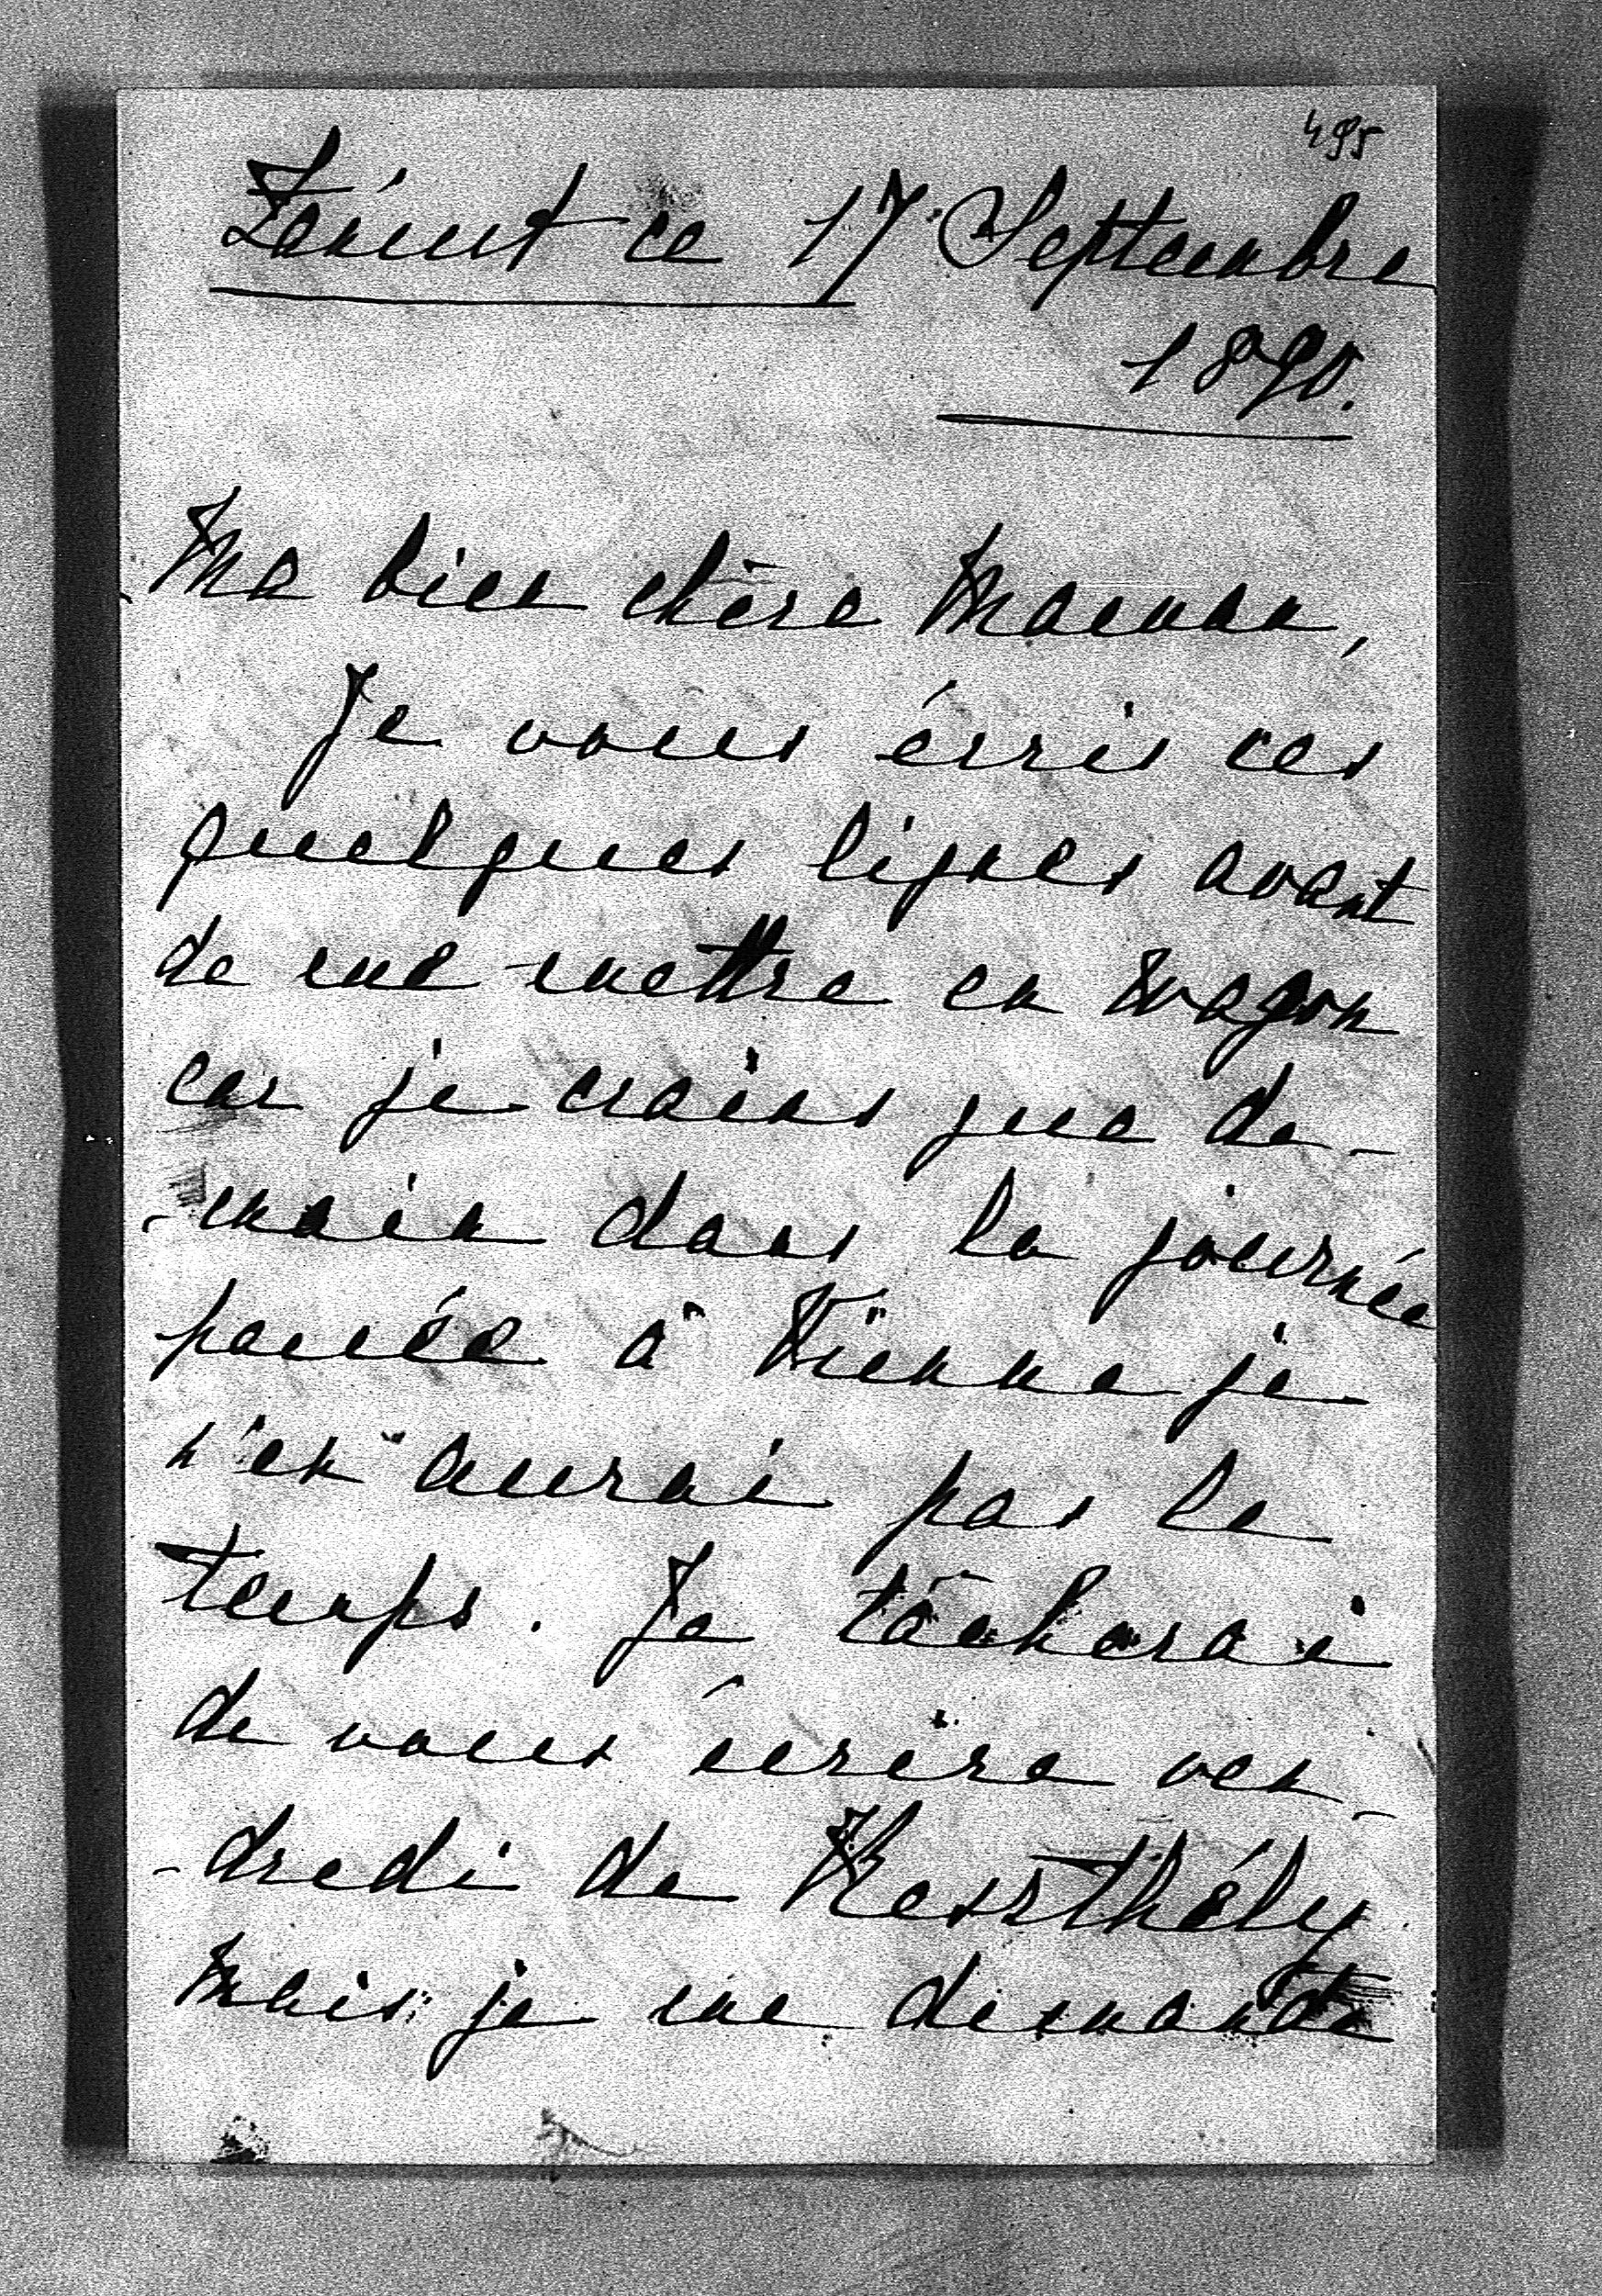 495
Lancut ce 17 Septembre
1890.
Ma bien chère Maman,
Je vous écris ces
quelques lignes avant
de me mettre en wagon
car je crains que de-
-main dans la journée
passée à Vienne je
n'en aurai pas le
temps. Je tâcherai
de vous écrire ven-
-dredi de Keszthély
Mais je me demande